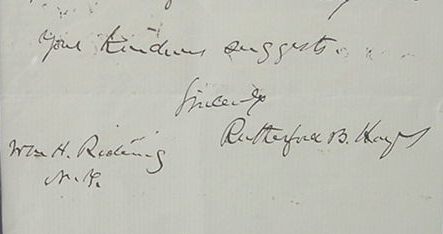 your kindness suggests.
Sincerely
Rutherford B. Hayes
Wm H. Rideing
N.Y.